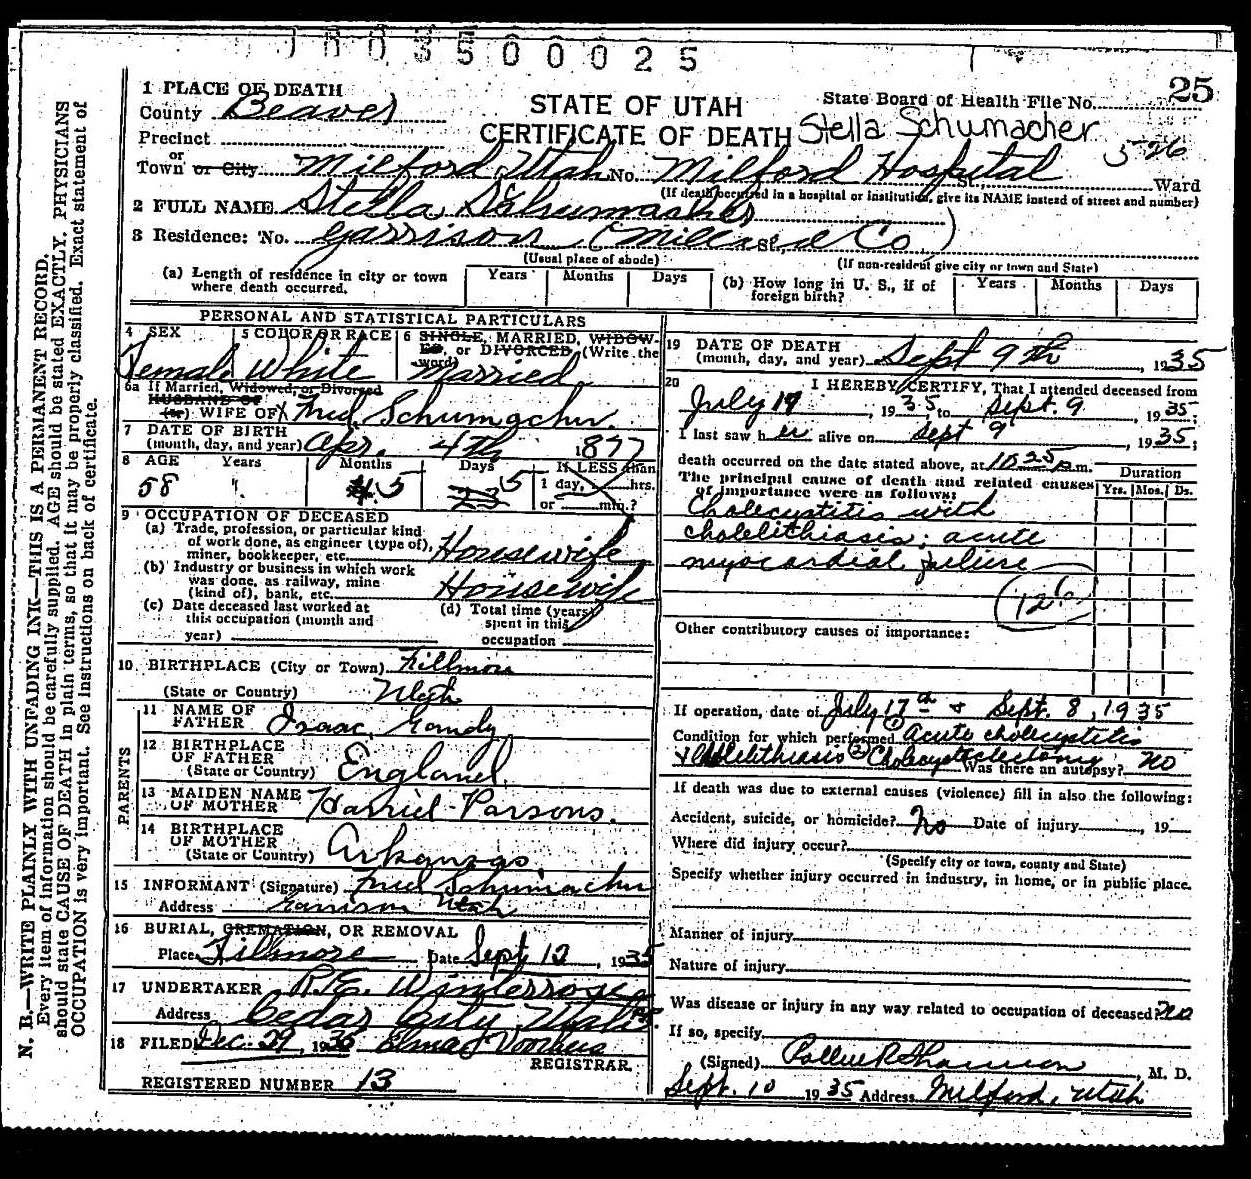 00 3500025
25
1 PLACE OF DEATH
County Beaver
STATE OF UTAH
State Board of Health File No.
Precinct
CERTIFICATE OF DEATH Stella Schumacher
526
or
Town or City Milford, Utah No. Milford Hospital St., Ward
(If death occurred in a hospital or institution, give its NAME instead of street and number)
2 FULL NAME Stella Schumacher
3 Residence: No. Garrison (Millard Co.) St.,
(Usual place of abode) (If non-resident give city or town and State)
(a) Length of residence in city or town where death occurred. Years Months Days (b) How long in U. S., if of foreign birth? Years Months Days
PERSONAL AND STATISTICAL PARTICULARS
4 SEX 5 COLOR OR RACE 6 SINGLE, MARRIED, WIDOWED, or DIVORCED (Write the word)
Female White Married
6a If Married, Widowed, or Divorced
HUSBAND OF
(or) WIFE OF Fred Schumacher
7 DATE OF BIRTH
(month, day, and year) Apr. 4th 1877
8 AGE Years Months Days If LESS than
58 5 5 1 day, hrs.
or min.?
9 OCCUPATION OF DECEASED
(a) Trade, profession, or particular kind
of work done, as engineer (type of),
miner, bookkeeper, etc. Housewife
(b) Industry or business in which work
was done, as railway, mine
(kind of), bank, etc. Housewife
(c) Date deceased last worked at
this occupation (month and
year)
(d) Total time (years)
spent in this
occupation
10 BIRTHPLACE (City or Town) Fillmore
(State or Country) Utah
PARENTS
11 NAME OF
FATHER Isaac Gandy
12 BIRTHPLACE
OF FATHER
(State or Country) England
13 MAIDEN NAME
OF MOTHER Harriet Parsons.
14 BIRTHPLACE
OF MOTHER
(State or Country) Arkansas
15 INFORMANT (Signature) Fred Schumacher
Address Garrison Utah
16 BURIAL, CREMATION, OR REMOVAL
Place Fillmore Date Sept 12, 1935
17 UNDERTAKER R.E. Winterrose
Address Cedar City, Utah
18 FILED Dec. 29, 1935 Elma J Voorhees
REGISTRAR.
REGISTERED NUMBER 13
19 DATE OF DEATH
(month, day, and year) Sept 9th, 1935
20 I HEREBY CERTIFY, That I attended deceased from
July 17, 1935, to Sept. 9, 1935;
I last saw her alive on Sept 9, 1935;
death occurred on the date stated above, at 10 25 p.m.
The principal cause of death and related causes
of importance were as follows:
Duration
Yrs. Mos. Ds.
Cholecystitis with
cholelithiasis; acute
myocardial failure
Other contributory causes of importance:
If operation, date of July 17th & Sept. 8, 1935
Condition for which performed (1) Acute cholecystitis
& Cholelithiasis (2) Cholecystectomy Was there an autopsy? no
If death was due to external causes (violence) fill in also the following:
Accident, suicide, or homicide? No Date of injury, 19
Where did injury occur?
(Specify city or town, county and State)
Specify whether injury occurred in industry, in home, or in public place.
Manner of injury
Nature of injury
Was disease or injury in any way related to occupation of deceased? no
If so, specify
(Signed), M. D.
Sept. 10 1935 Address Milford, Utah
N. B.—WRITE PLAINLY WITH UNFADING INK—THIS IS A PERMANENT RECORD.
Every item of information should be carefully supplied. AGE should be stated EXACTLY. PHYSICIANS
should state CAUSE OF DEATH in plain terms, so that it may be properly classified. Exact statement of
OCCUPATION is very important. See instructions on back of certificate.